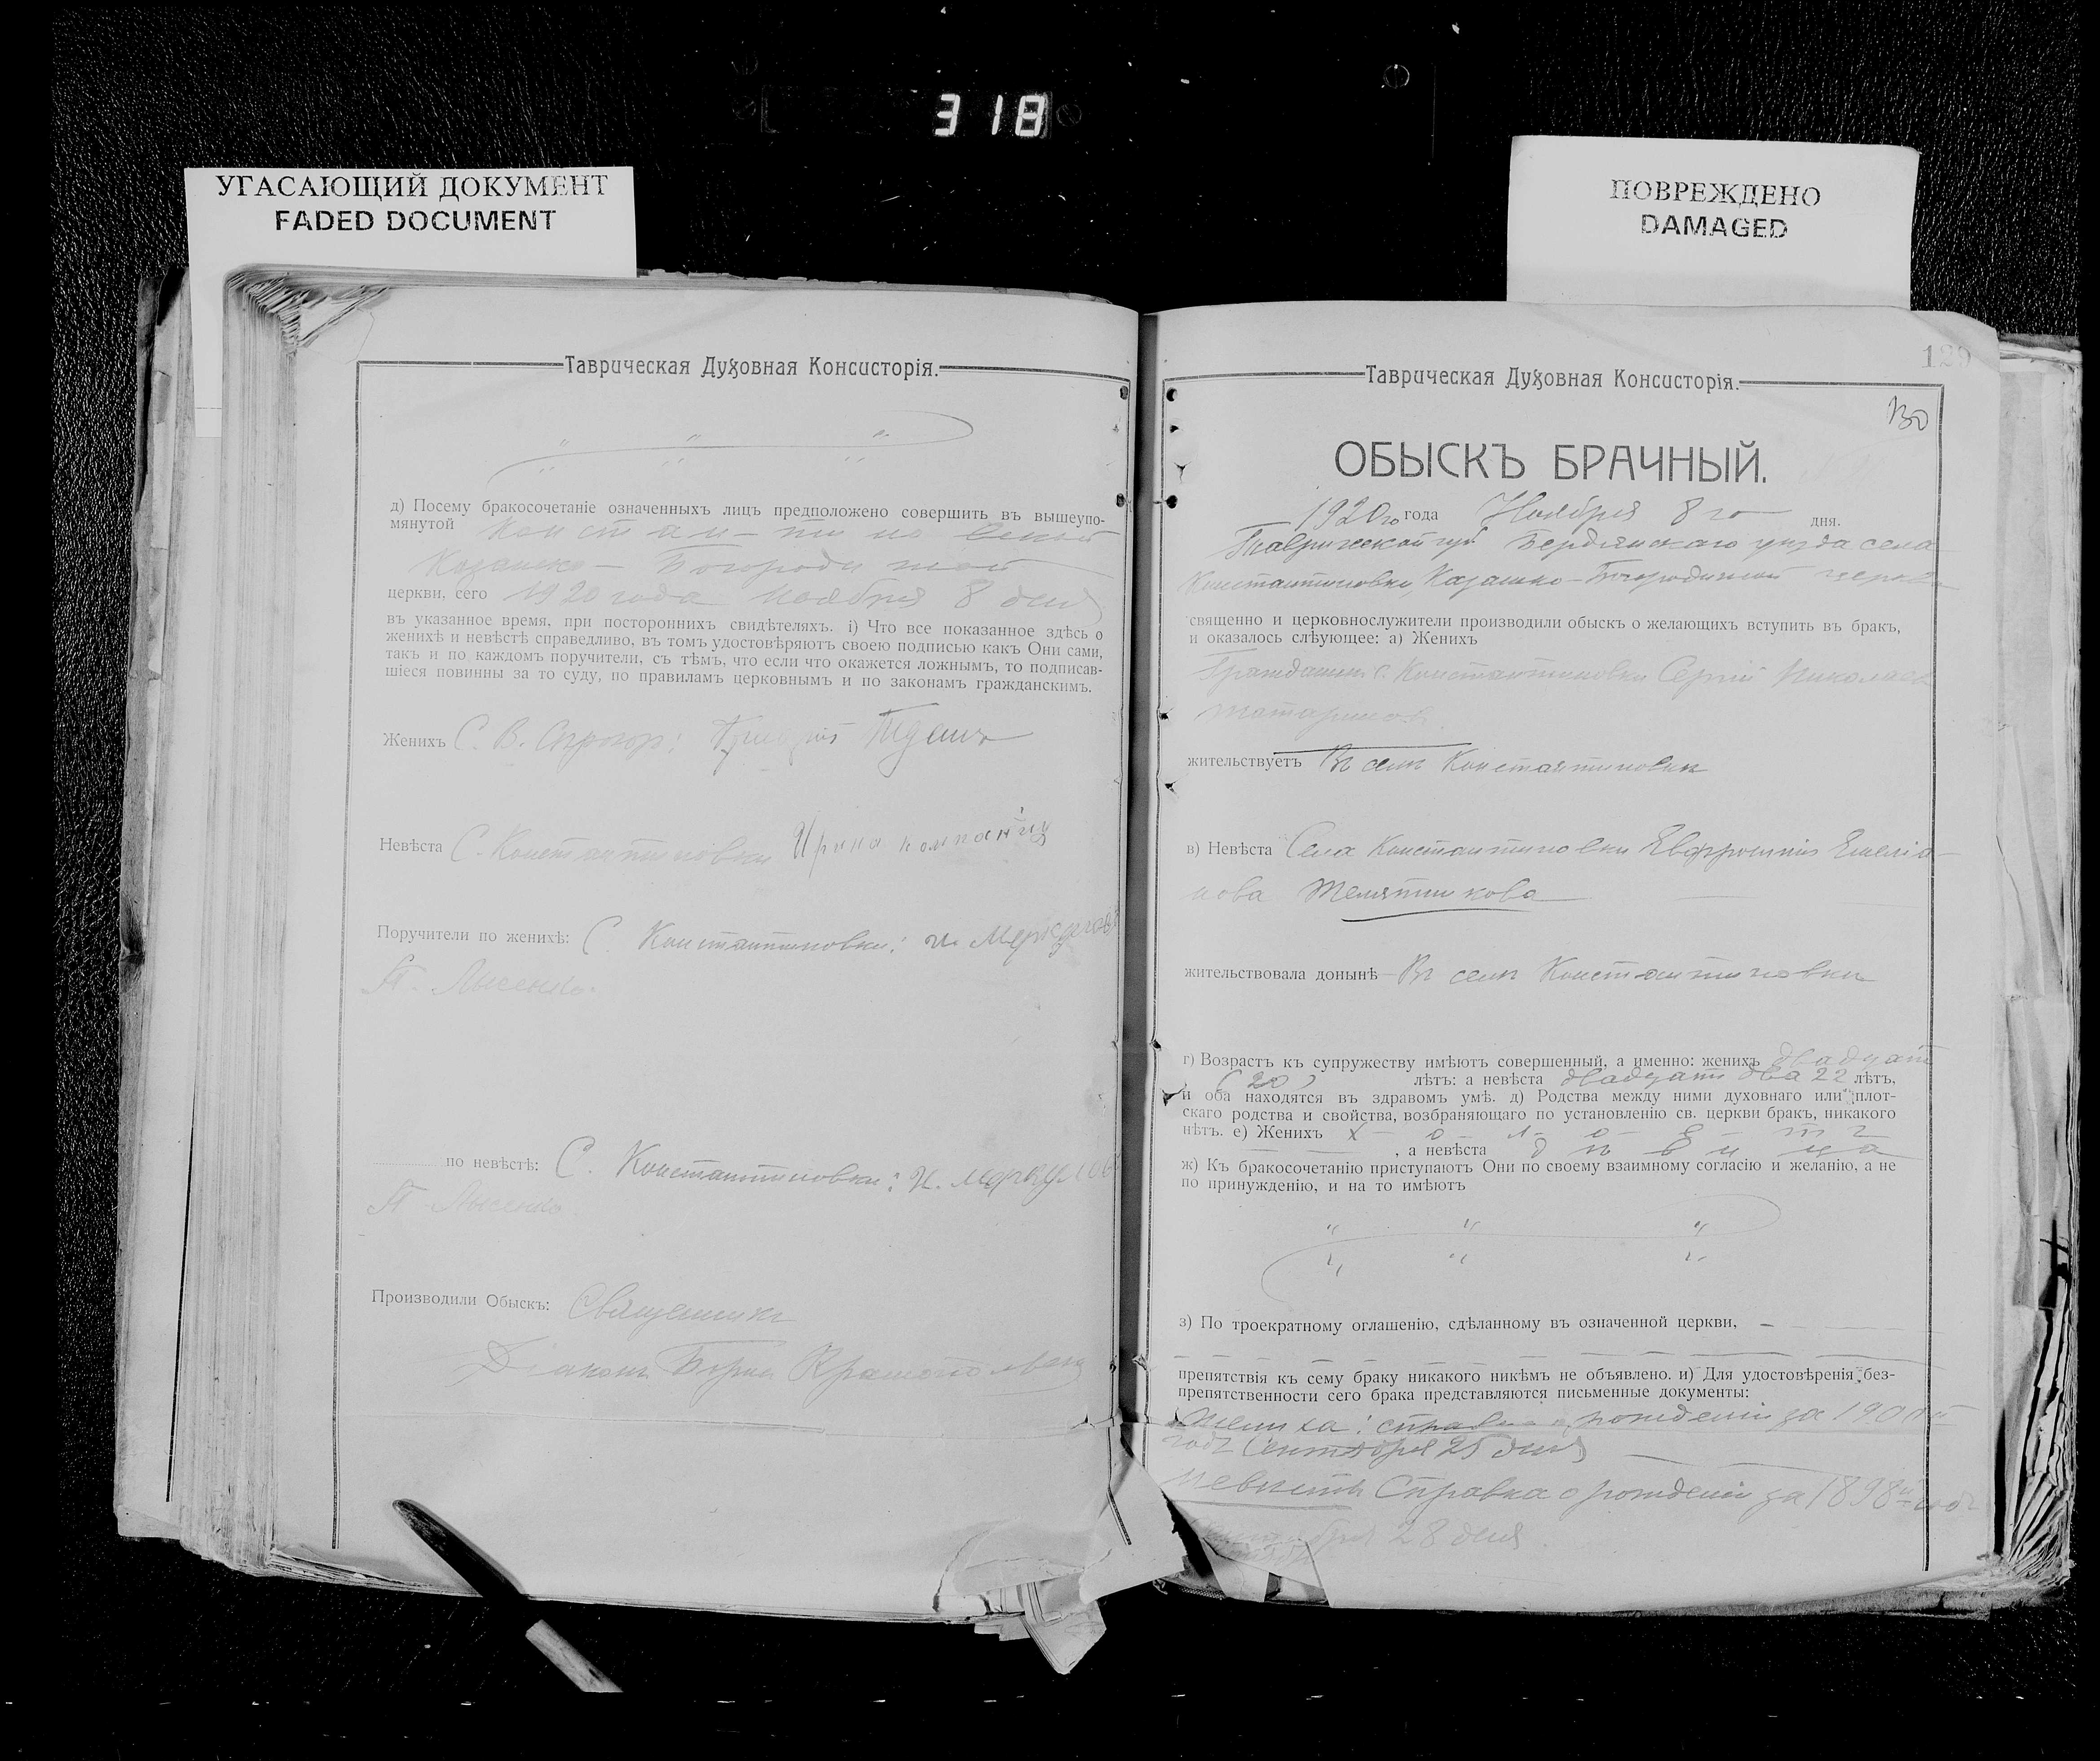 318
УГАСАЮЩИЙ ДОКУМЕНТ
FADED DOCUMENT
ПОВРЕЖДЕНО
DAMAGED
Таврическая Духовная Консисторія.
д) Посему бракосочетаніе означенныхъ лицъ предположено совершить въ вышеупо-
мянутой Констан-тиновской
Казанско-Богородичной
церкви, сего 1920 года Ноября 8 дня
въ указанное время, при постороннихъ свидѣтеляхъ. і) Что все показанное здѣсь о
женихѣ и невѣстѣ справедливо, въ томъ удостовѣряютъ своею подписью какъ Они сами,
такъ и по каждомъ поручители, съ тѣмъ, что если что окажется ложнымъ, то подписав-
шіеся повинны за то суду, по правиламъ церковнымъ и по законамъ гражданскимъ.
Женихъ С. В.
Невѣста С. Константиновки Ирина
Поручители по женихѣ: С. Константиновки: И. Меркулов
П. Лысенко.
по невѣстѣ: С. Константиновки: И. Меркулов
П. Лысенко.
Производили Обыскъ: Священникъ
Діаконъ
Таврическая Духовная Консисторія.
129
130
ОБЫСКЪ БРАЧНЫЙ.
1920го года Ноября 8го дня.
Таврической губ. Бердянскаго уѣзда села
Константиновки, Казанско-Богородичной церкви
священно и церковнослужители производили обыскъ о желающихъ вступить въ бракъ,
и оказалось слѣующее: а) Женихъ
Гражданинъ с. Константиновки Сергій Николаев
Татаринов
жительствуетъ Въ селѣ Константиновкѣ
в) Невѣста Села Константиновки Евфросинія Емеліа-
нова Телятникова
жительствовала донынѣ Въ селѣ Константиновки
г) Возрастъ къ супружеству имѣютъ совершенный, а именно: женихъ двадцать
(20) лѣтъ: а невѣста двадцать два 22 лѣтъ,
и оба находятся въ здравомъ умѣ. д) Родства между ними духовнаго или плот-
скаго родства и свойства, возбраняющаго по установленію св. церкви бракъ, никакого
нѣтъ. е) Женихъ х-о-л-о-с-т-ъ
, а невѣста дѣвица
ж) Къ бракосочетанію приступаютъ Они по своему взаимному согласію и желанію, а не
по принужденію, и на то имѣютъ
з) По троекратному оглашенію, сдѣланному въ означенной церкви,
препятствія къ сему браку никакого никѣмъ не объявлено. и) Для удостовѣренія без-
препятственности сего брака представляются письменные документы:
Жениха: справка о рожденіи за 1900й
годъ Сентября 25 дня
Невѣсты Справка о рожденіи за 1898й годъ
28 дня